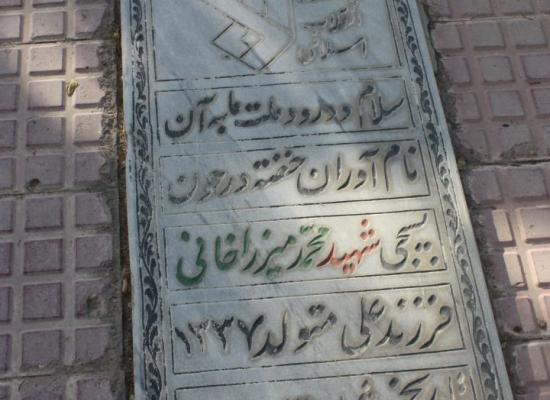 انقلاب
اسلامی
سلام و درود ملت ما به آن
نام آوران خفته در خون
بسیجی شهید محمد میرزاخانی
فرزند علی متولد ۱۳۳۷